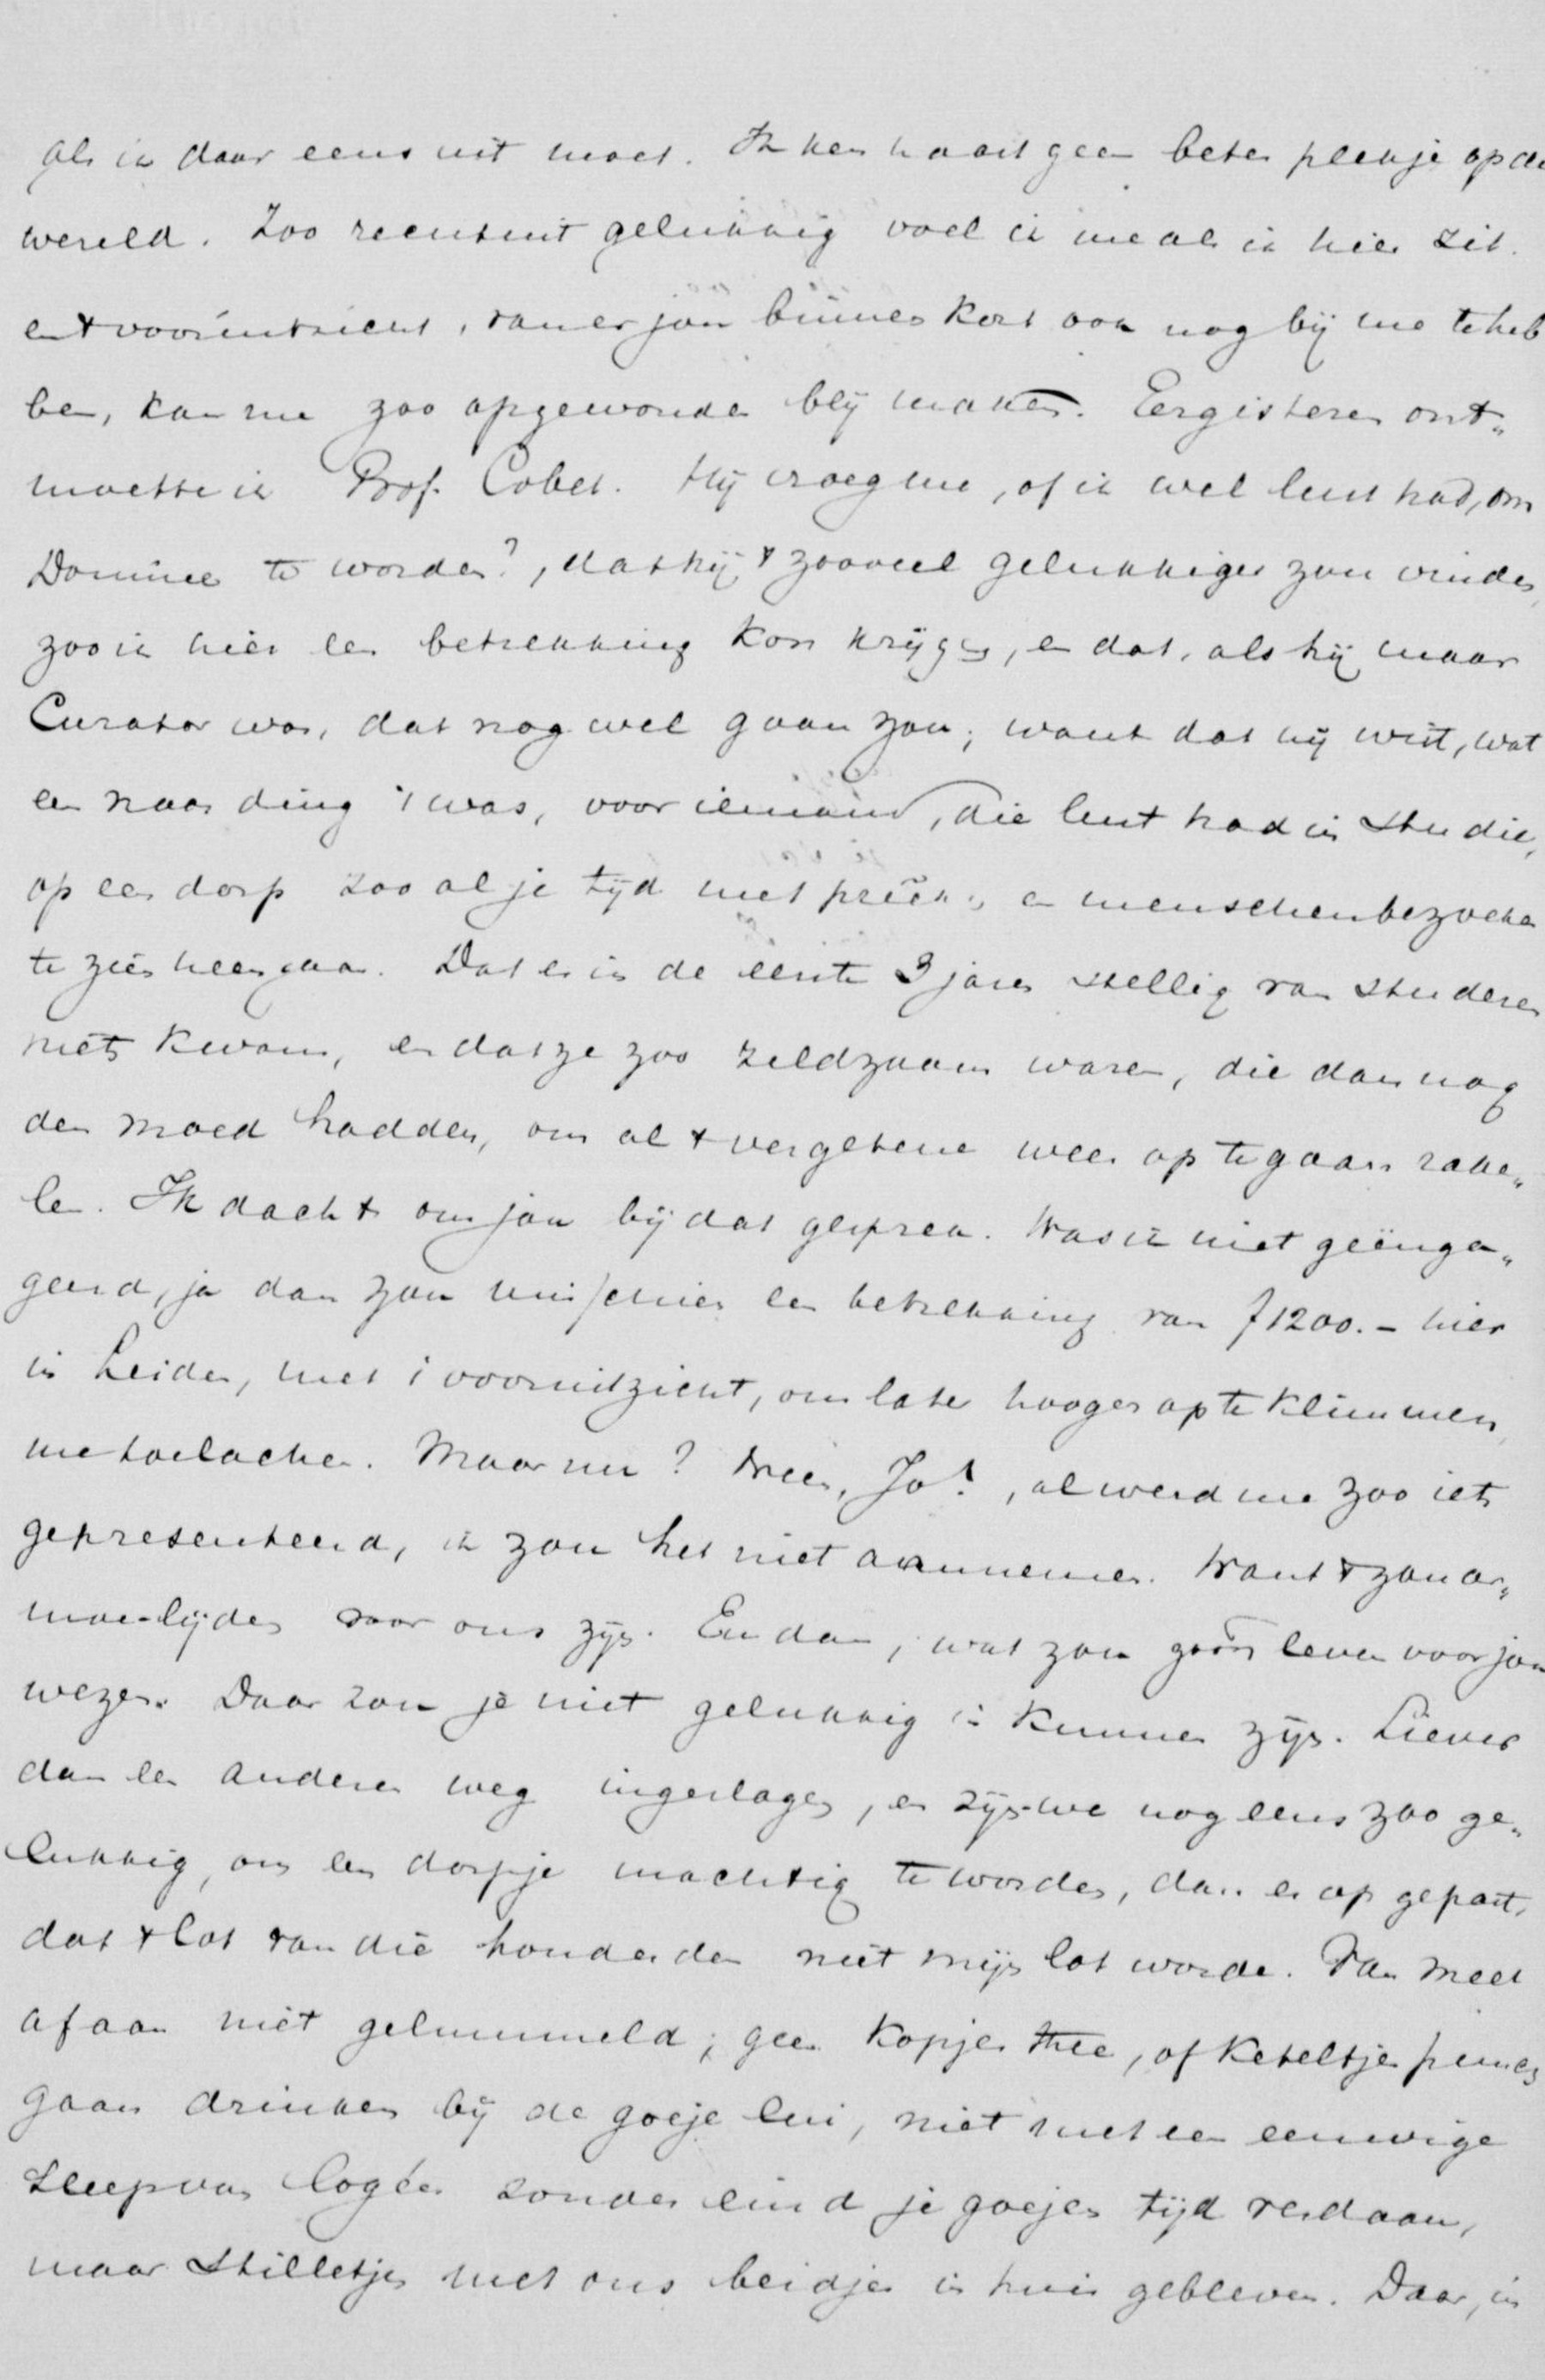 als ik daar eens uit moet. Ik ken haast geen beter plekje op de
wereld. Zoo recht uit gelukkig voel ik me als ik hier zit.
en 't vooruitzicht, van er jou binnen kort ook nog bij me te heb
ben, kan me zoo opgewonden blij maken. Eergisteren ont„
moette ik Prof. Cobet. Hij vroeg me, of ik wel lust had, om
Dominee te worden?, dat hij 't zooveel gelukkiger zou vinden,
zoo ik hier een betrekking kon krijgen, en dat, als hij maar
Curator was, dat nog wel gaan zou; want dat hij wist, wat
een naar ding 't was, voor iemand, die lust had in studie,
op een dorp zoo al je tijd met preeken en menschenbezoeken
te zien heengaan. Dat er in de eerste 3 jaren stellig van studeren
niets kwam, en dat ze zoo zeldzaam waren, die dan nog
den moed hadden, om al 't vergetene weer op te gaan rake„
len. Ik dacht om jou bij dat gesprek. Was ik niet geënga„
geerd, ja dan zou misschien een betrekking van f 1200.- hier
in Leiden, met 't vooruitzicht, om later hooger op te klimmen,
me toelachen. Maar nu? Neen, Jo!, al werd me zoo iets
gepresenteerd, ik zou het niet aannemen. Want 't zou ar„
moe-lijden voor ons zijn. En dan, wat zou zoo'n leven voor jou
wezen. Daar zou je niet gelukkig in kunnen zijn. Liever
dan een anderen weg ingeslagen, en zijn we nog eens zoo ge„
lukkig, om een dorpje machtig te worden, dan er op gepast,
dat 't lot van die honderden niet mijn lot worde. Van meet
af aan niet gelummeld; geen kopjes thee, of keteltjes punch
gaan drinken bij de goeje lui, niet met een eeuwige
sleep van logées zonder eind je goejen tijd verdaan,
maar stilletjes met ons beidjes in huis gebleven. Daar, in